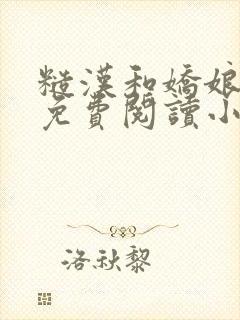 糙漢和嬌娘
免費閱讀小
洛秋黎